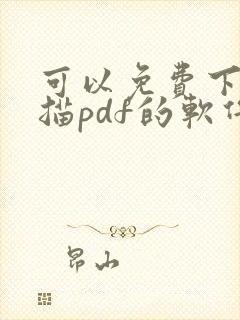 可以免費下
描pdf的軟件
昂山